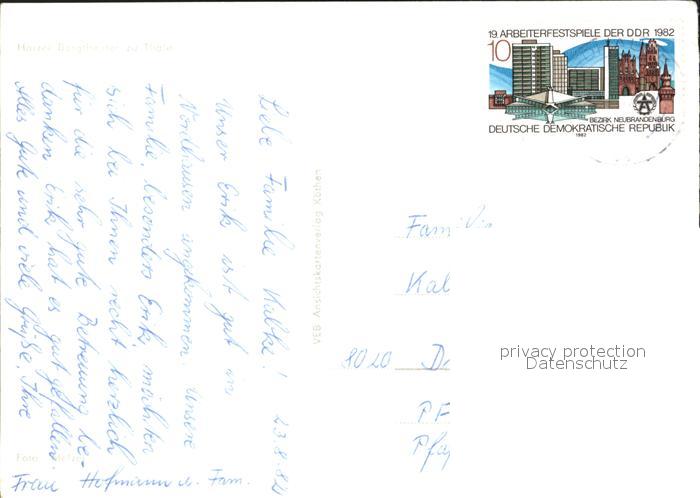 Harzer Bergtheater zu Thale
19. ARBEITERFESTSPIELE DER DDR 1982
10
BEZIRK NEUBRANDENBURG
DEUTSCHE DEMOKRATISCHE REPUBLIK
1982
23.8.82
Liebe Familie
Unser Erik ist gut in
Nordhausen angekommen. Unsere
Familie besonders Erik möchten
sich bei Ihnen recht herzlich
für die sehr gute Betreuung be-
danken. Erik hat es gut gefallen.
Alles Gute und viele Grüße, Ihre
Frau Hofmann u. Fam.
VEB Ansichtskartenverlag Köthen
Familie
Kal
8020 D
PF
privacy protection
Datenschutz
Foto